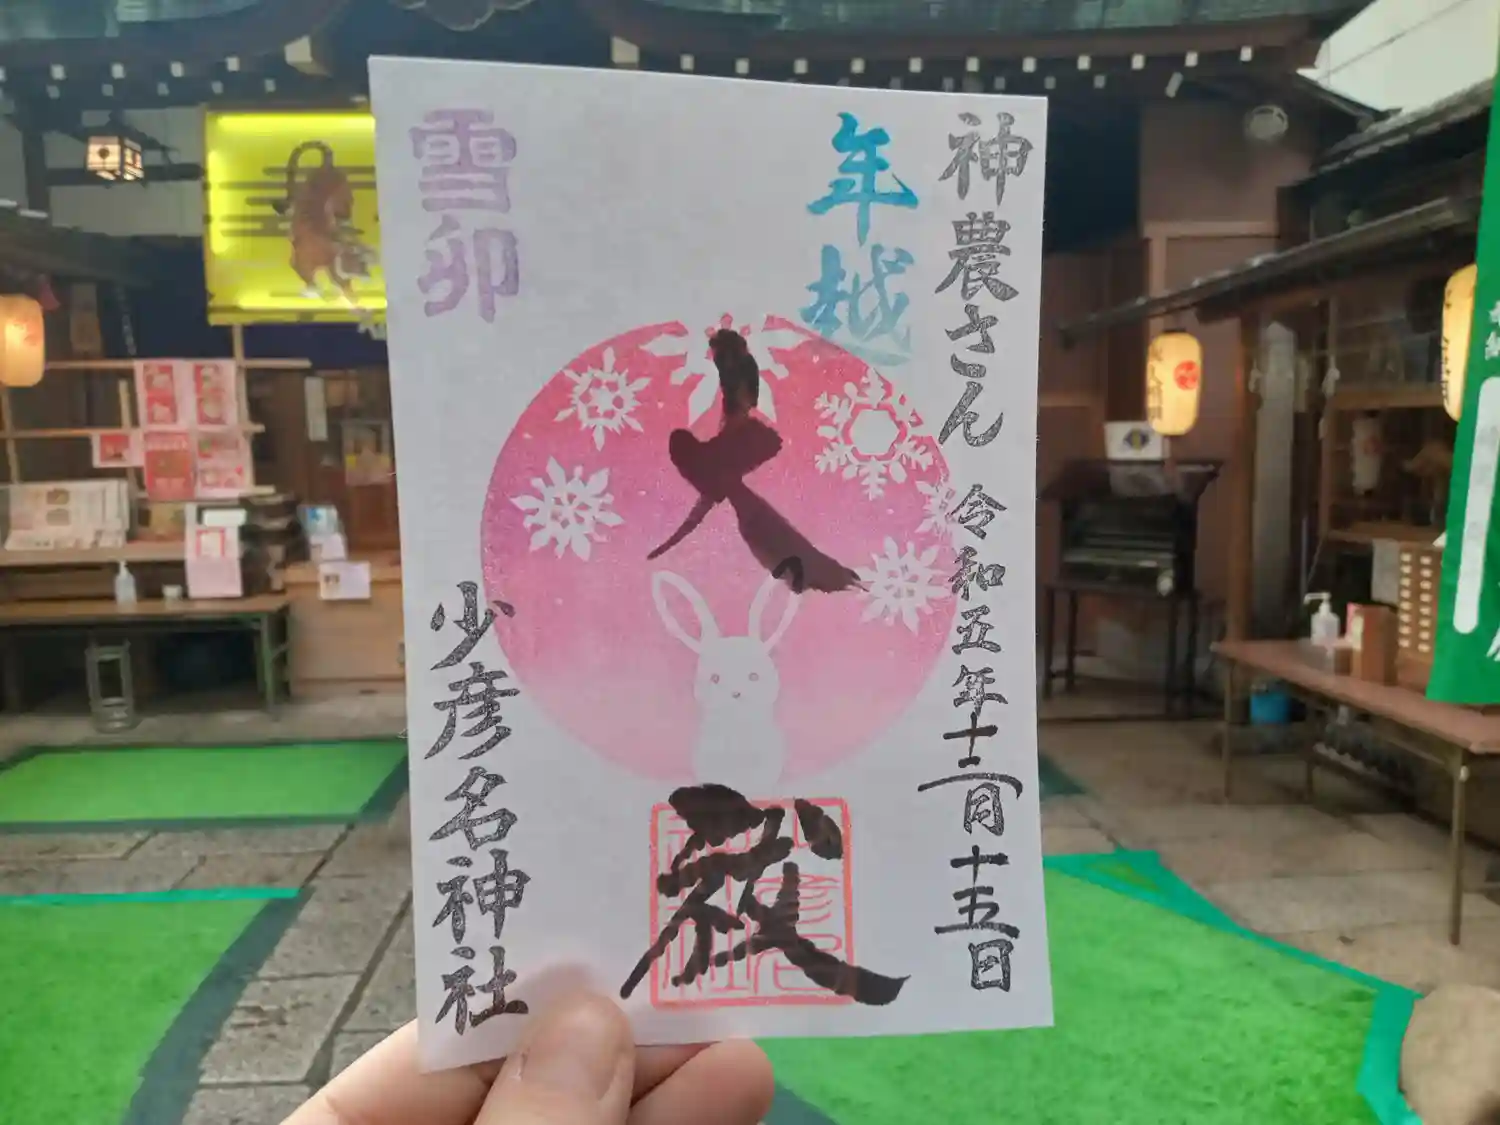 神農さん 令和五年十二月十五日
年越
大祓
雪卯
少彦名神社